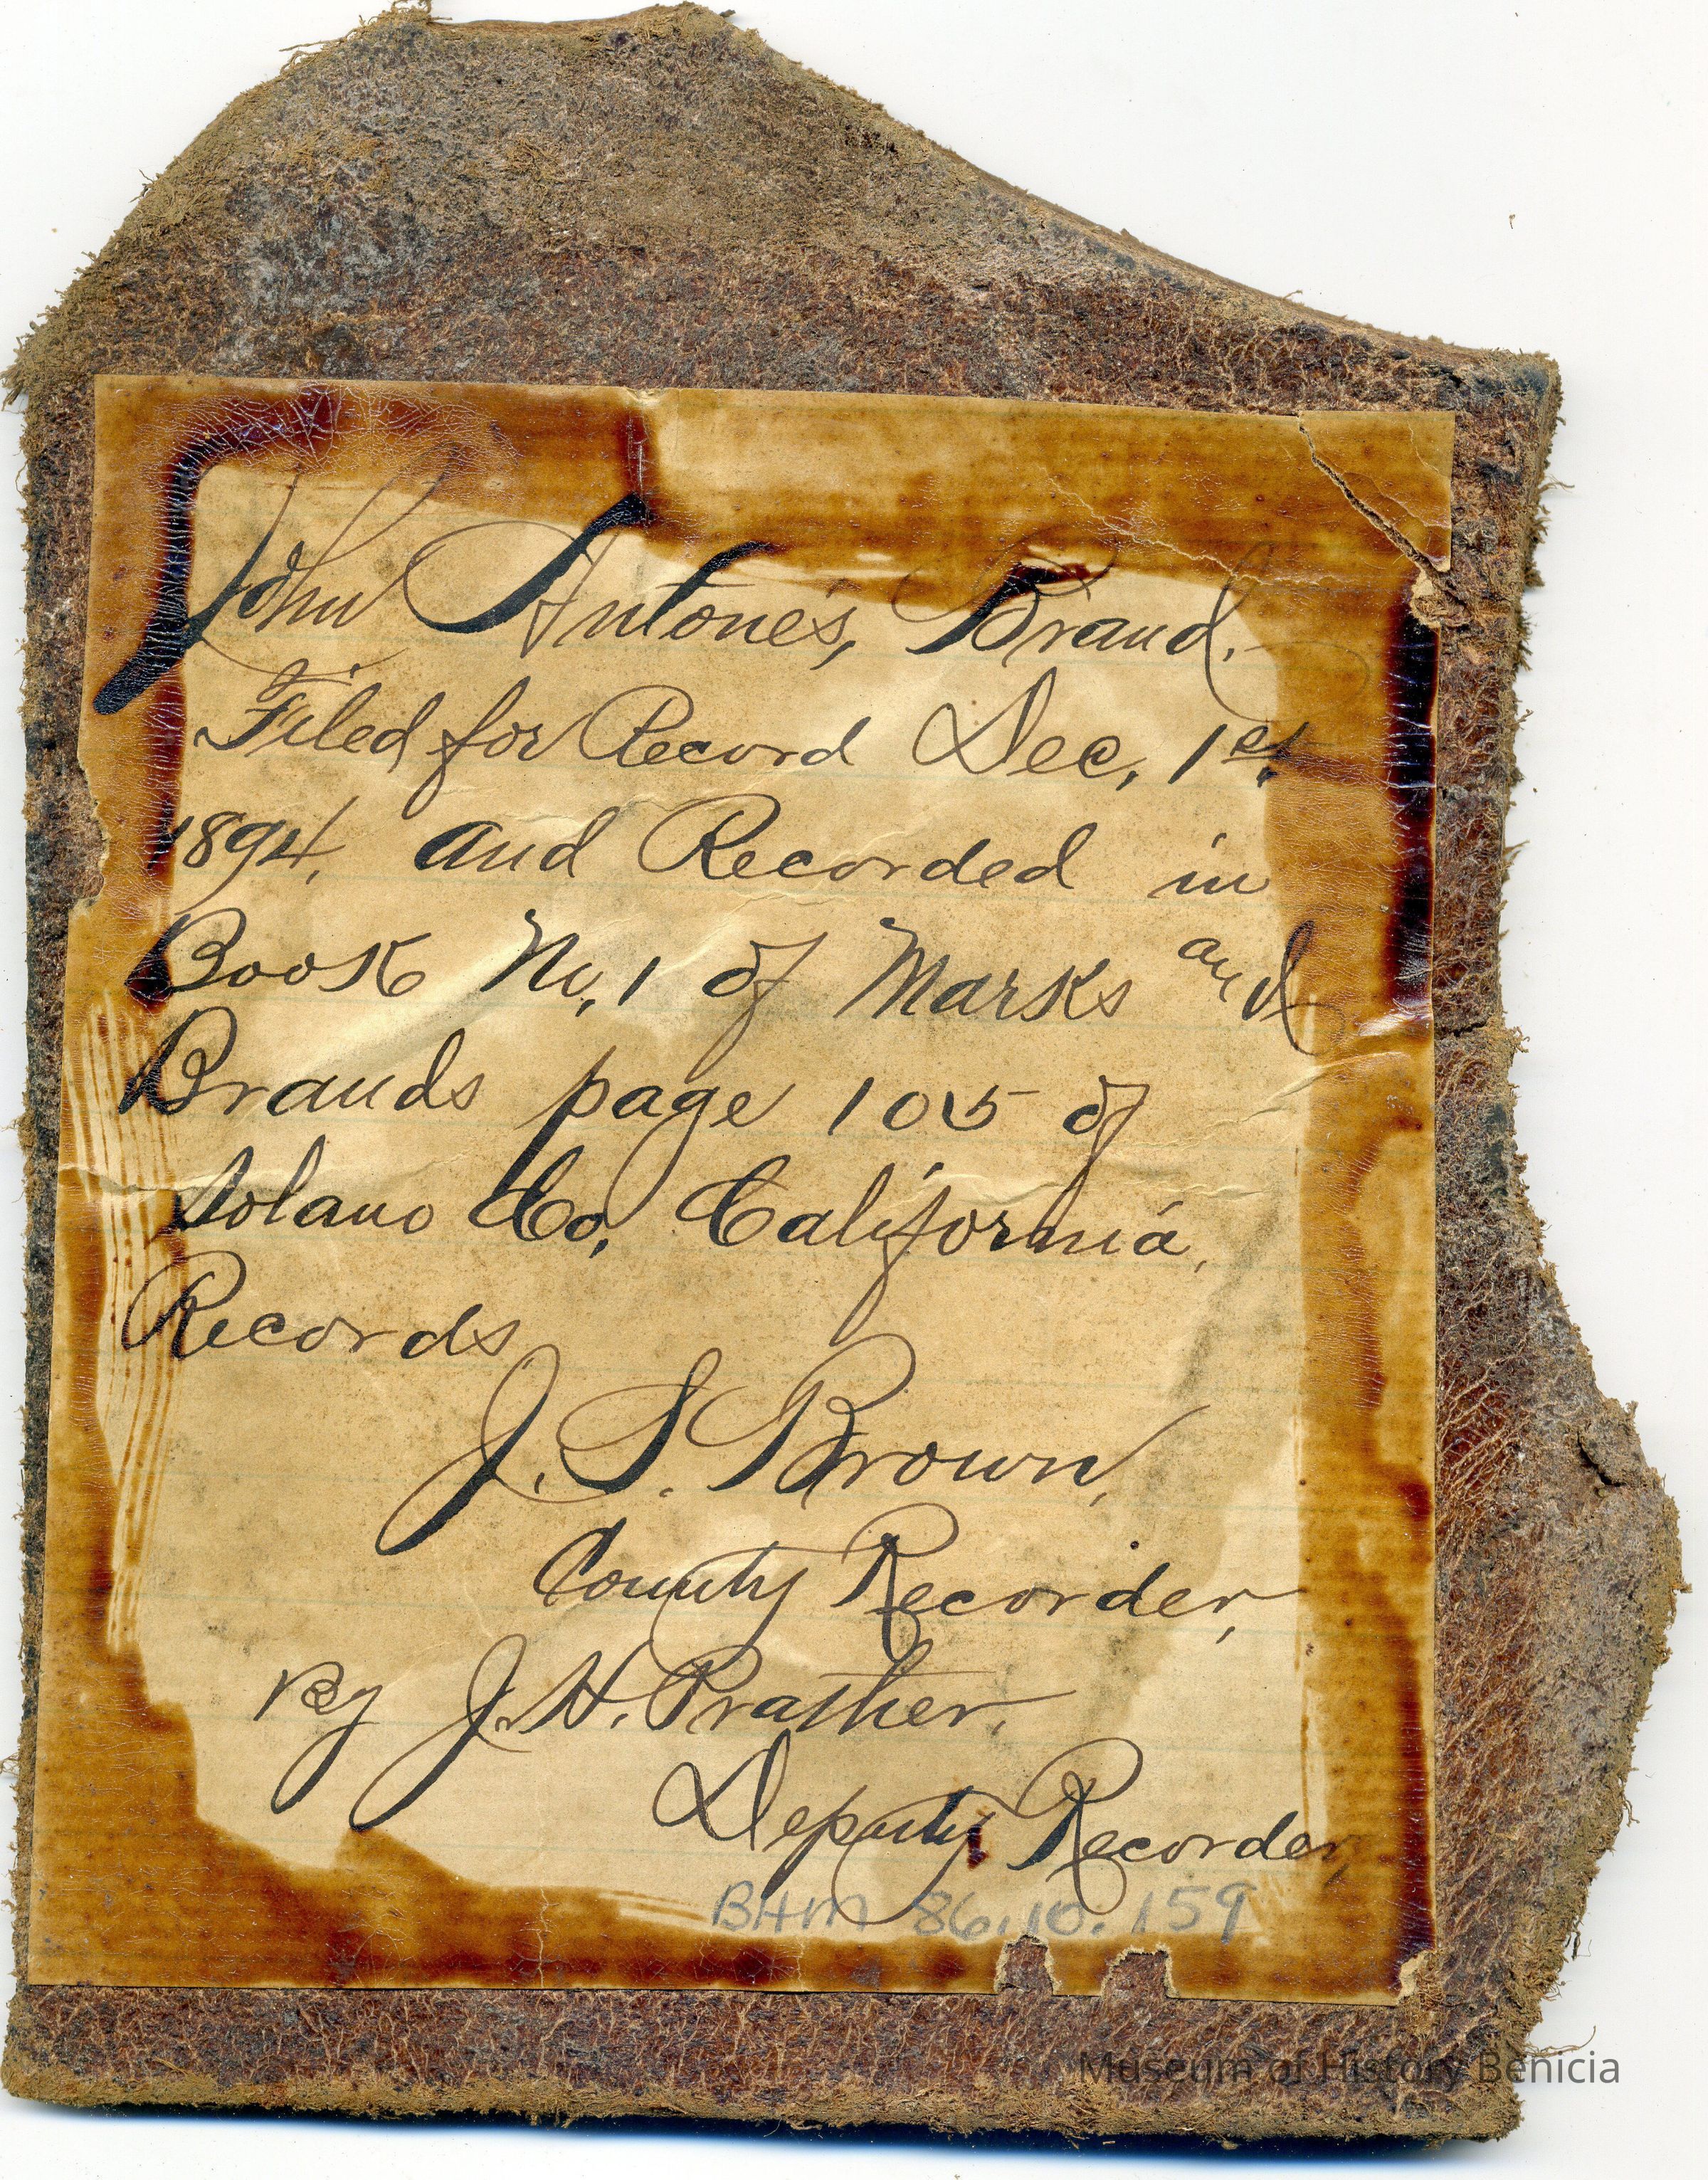 John Antone's, Brand.
Filed for Record Dec, 1st,
1894, and Recorded in
Book No, 1 of Marks and
Brands page 105 of
Solano Co, California,
Records
J. S. Brown,
County Recorder,
By J. H. Prather,
Deputy Recorder,
BHM 86.10.159
Museum of History Benicia